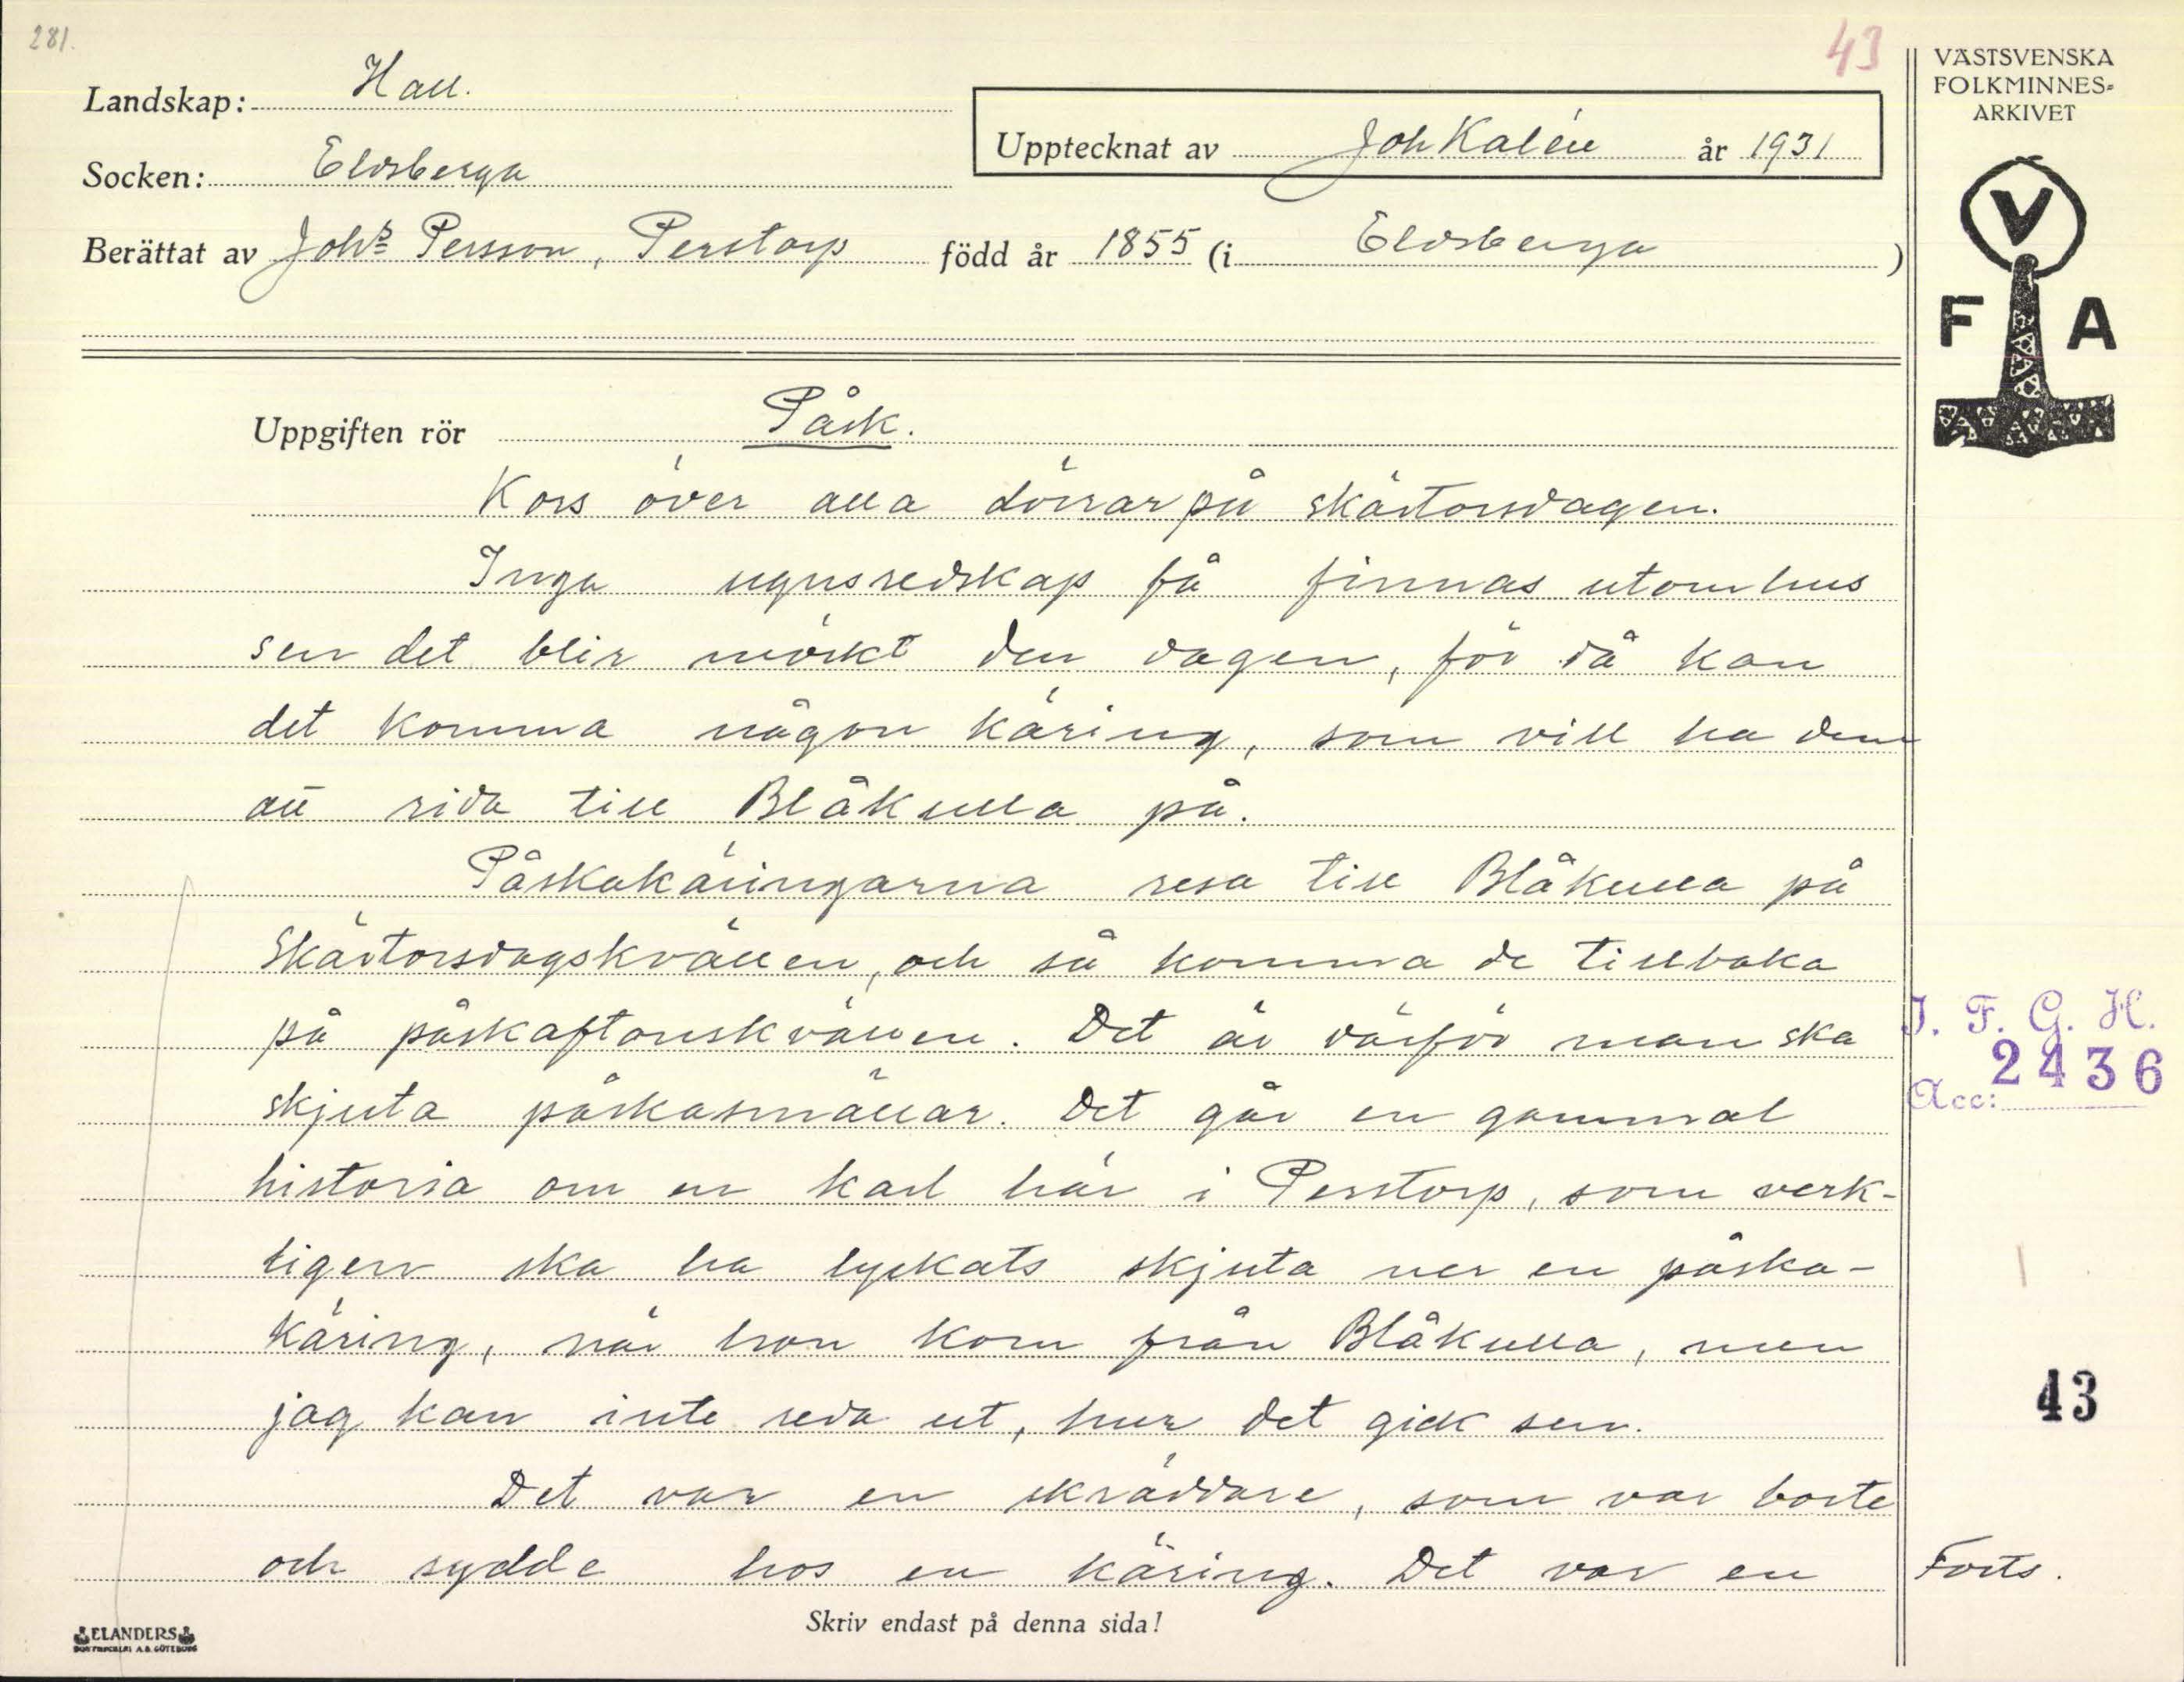 281.
43
Landskap: Hall.
Socken: Eldsberga
Upptecknat av Joh Kalén år 1931
Berättat av Johs Persson, Perstorp född år 1855 (i Eldsberga )
VÄSTSVENSKA
FOLKMINNES-
ARKIVET
V
F A
Uppgiften rör Påsk.
Kors över alla dörrar på skärtorsdagen.
Inga ugnsredskap få finnas utomhus
sen det blir mörkt den dagen, för då kan
det komma någon käring, som vill ha dem
att rida till Blåkulla på.
Påskakäringarna resa till Blåkulla på
Skärtorsdagskvällen, och så komma de tillbaka
på påskaftonskvällen. Det är därför man ska
skjuta påskasmällar. Det går en gammal
historia om en karl här i Perstorp, som verk-
ligen ska ha lyckats skjuta ner en påska-
käring, när hon kom från Blåkulla, men
jag kan inte reda ut, hur det gick sen.
Det var en skräddare, som var borte
och sydde hos en käring. Det var en
Forts.
I. F. G. H.
Acc: 2436
43
Skriv endast på denna sida!
ELANDERS
BOKTRYCKERI A.B. GÖTEBORG